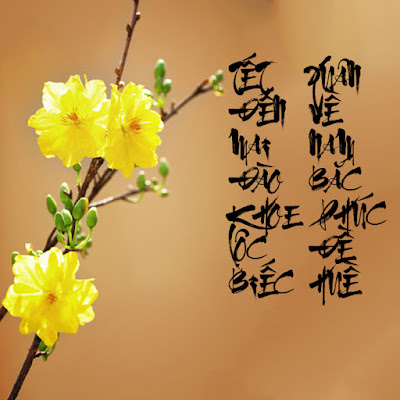 TẾT ĐẾN MAI ĐÀO KHOE LỘC BIẾC
XUÂN VỀ NAM BẮC PHÚC ĐỀ HUỀ